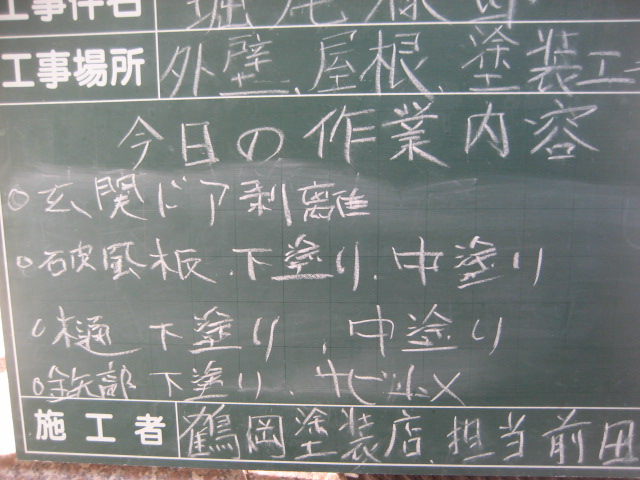 工事件名 堀尾様邸
工事場所 外壁、屋根、塗装工
今日の作業内容
○玄関ドア剥離
○破風板、下塗り、中塗り
○樋 下塗り、中塗り
○鉄部 下塗り、サビ止メ
施工者 鶴岡塗装店、担当前田